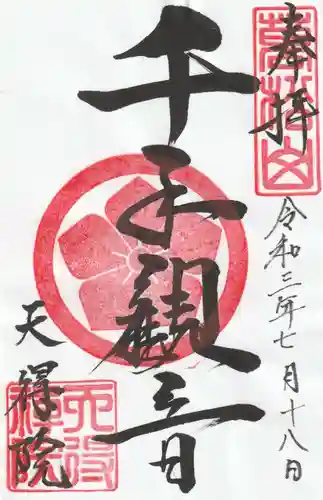 奉拝
令和三年七月十八日
千手観音
天得院